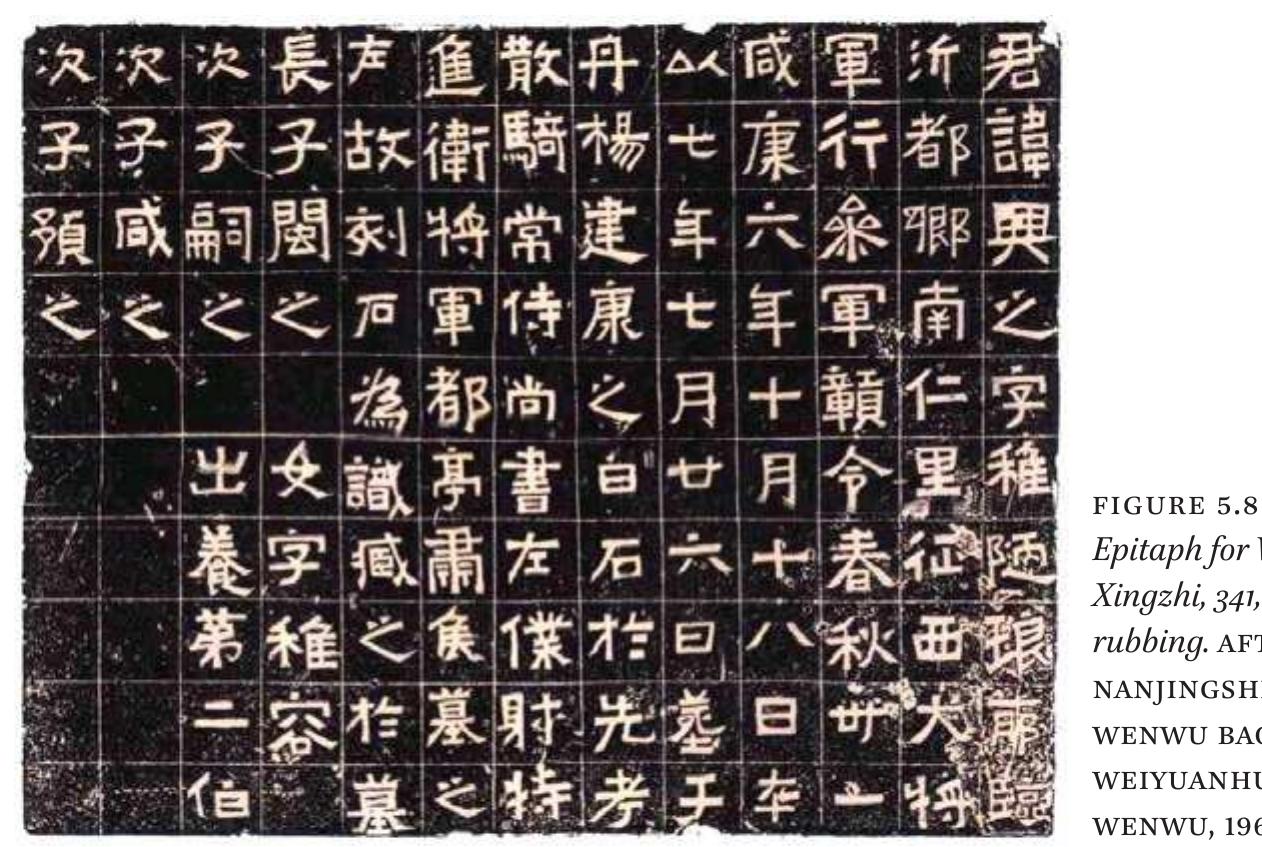 君諱興之字稚陋琅耶臨
沂都鄉南仁里征西大將
軍行參軍贛令春秋卅一
咸康六年十月十八日卒
以七年七月廿六日葬于
丹楊建康之白石於先考
散騎常侍尚書左僕射特
進衛將軍都亭肅侯墓之
左故刻石為識臧之於墓
長子閩之 女字稚容
次子嗣之 出養第二伯
次子咸之
次子預之
FIGURE 5.8
Epitaph for
Xingzhi, 341,
rubbing.
NANJINGSH
WENWU
WEIYUANHU
WENWU, 196